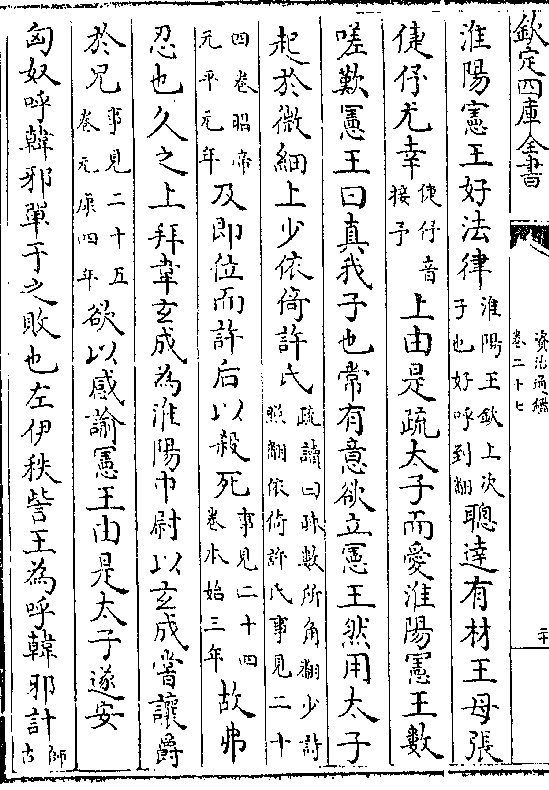 欽定四庫全書
資治通鑑
卷二十七
二十
淮陽憲王好法律淮陽王欽上次子也好呼到翻聰達有材王母張
倢伃尤幸倢伃音接予上由是疏太子而愛淮陽憲王數
嗟歎憲王曰真我子也常有意欲立憲王然用太子
起於微細上少依倚許氏疏讀曰踈數所角翻少詩照翻依倚許氏事見二十
四卷昭帝元平元年及即位而許后以殺死事見二十四卷本始三年故弗
忍也久之上拜韋玄成為淮陽中尉以玄成嘗讓爵
於兄事見二十五卷元康四年欲以感諭憲王由是太子遂安
匈奴呼韓邪單于之敗也左伊秩訾王為呼韓邪計師古